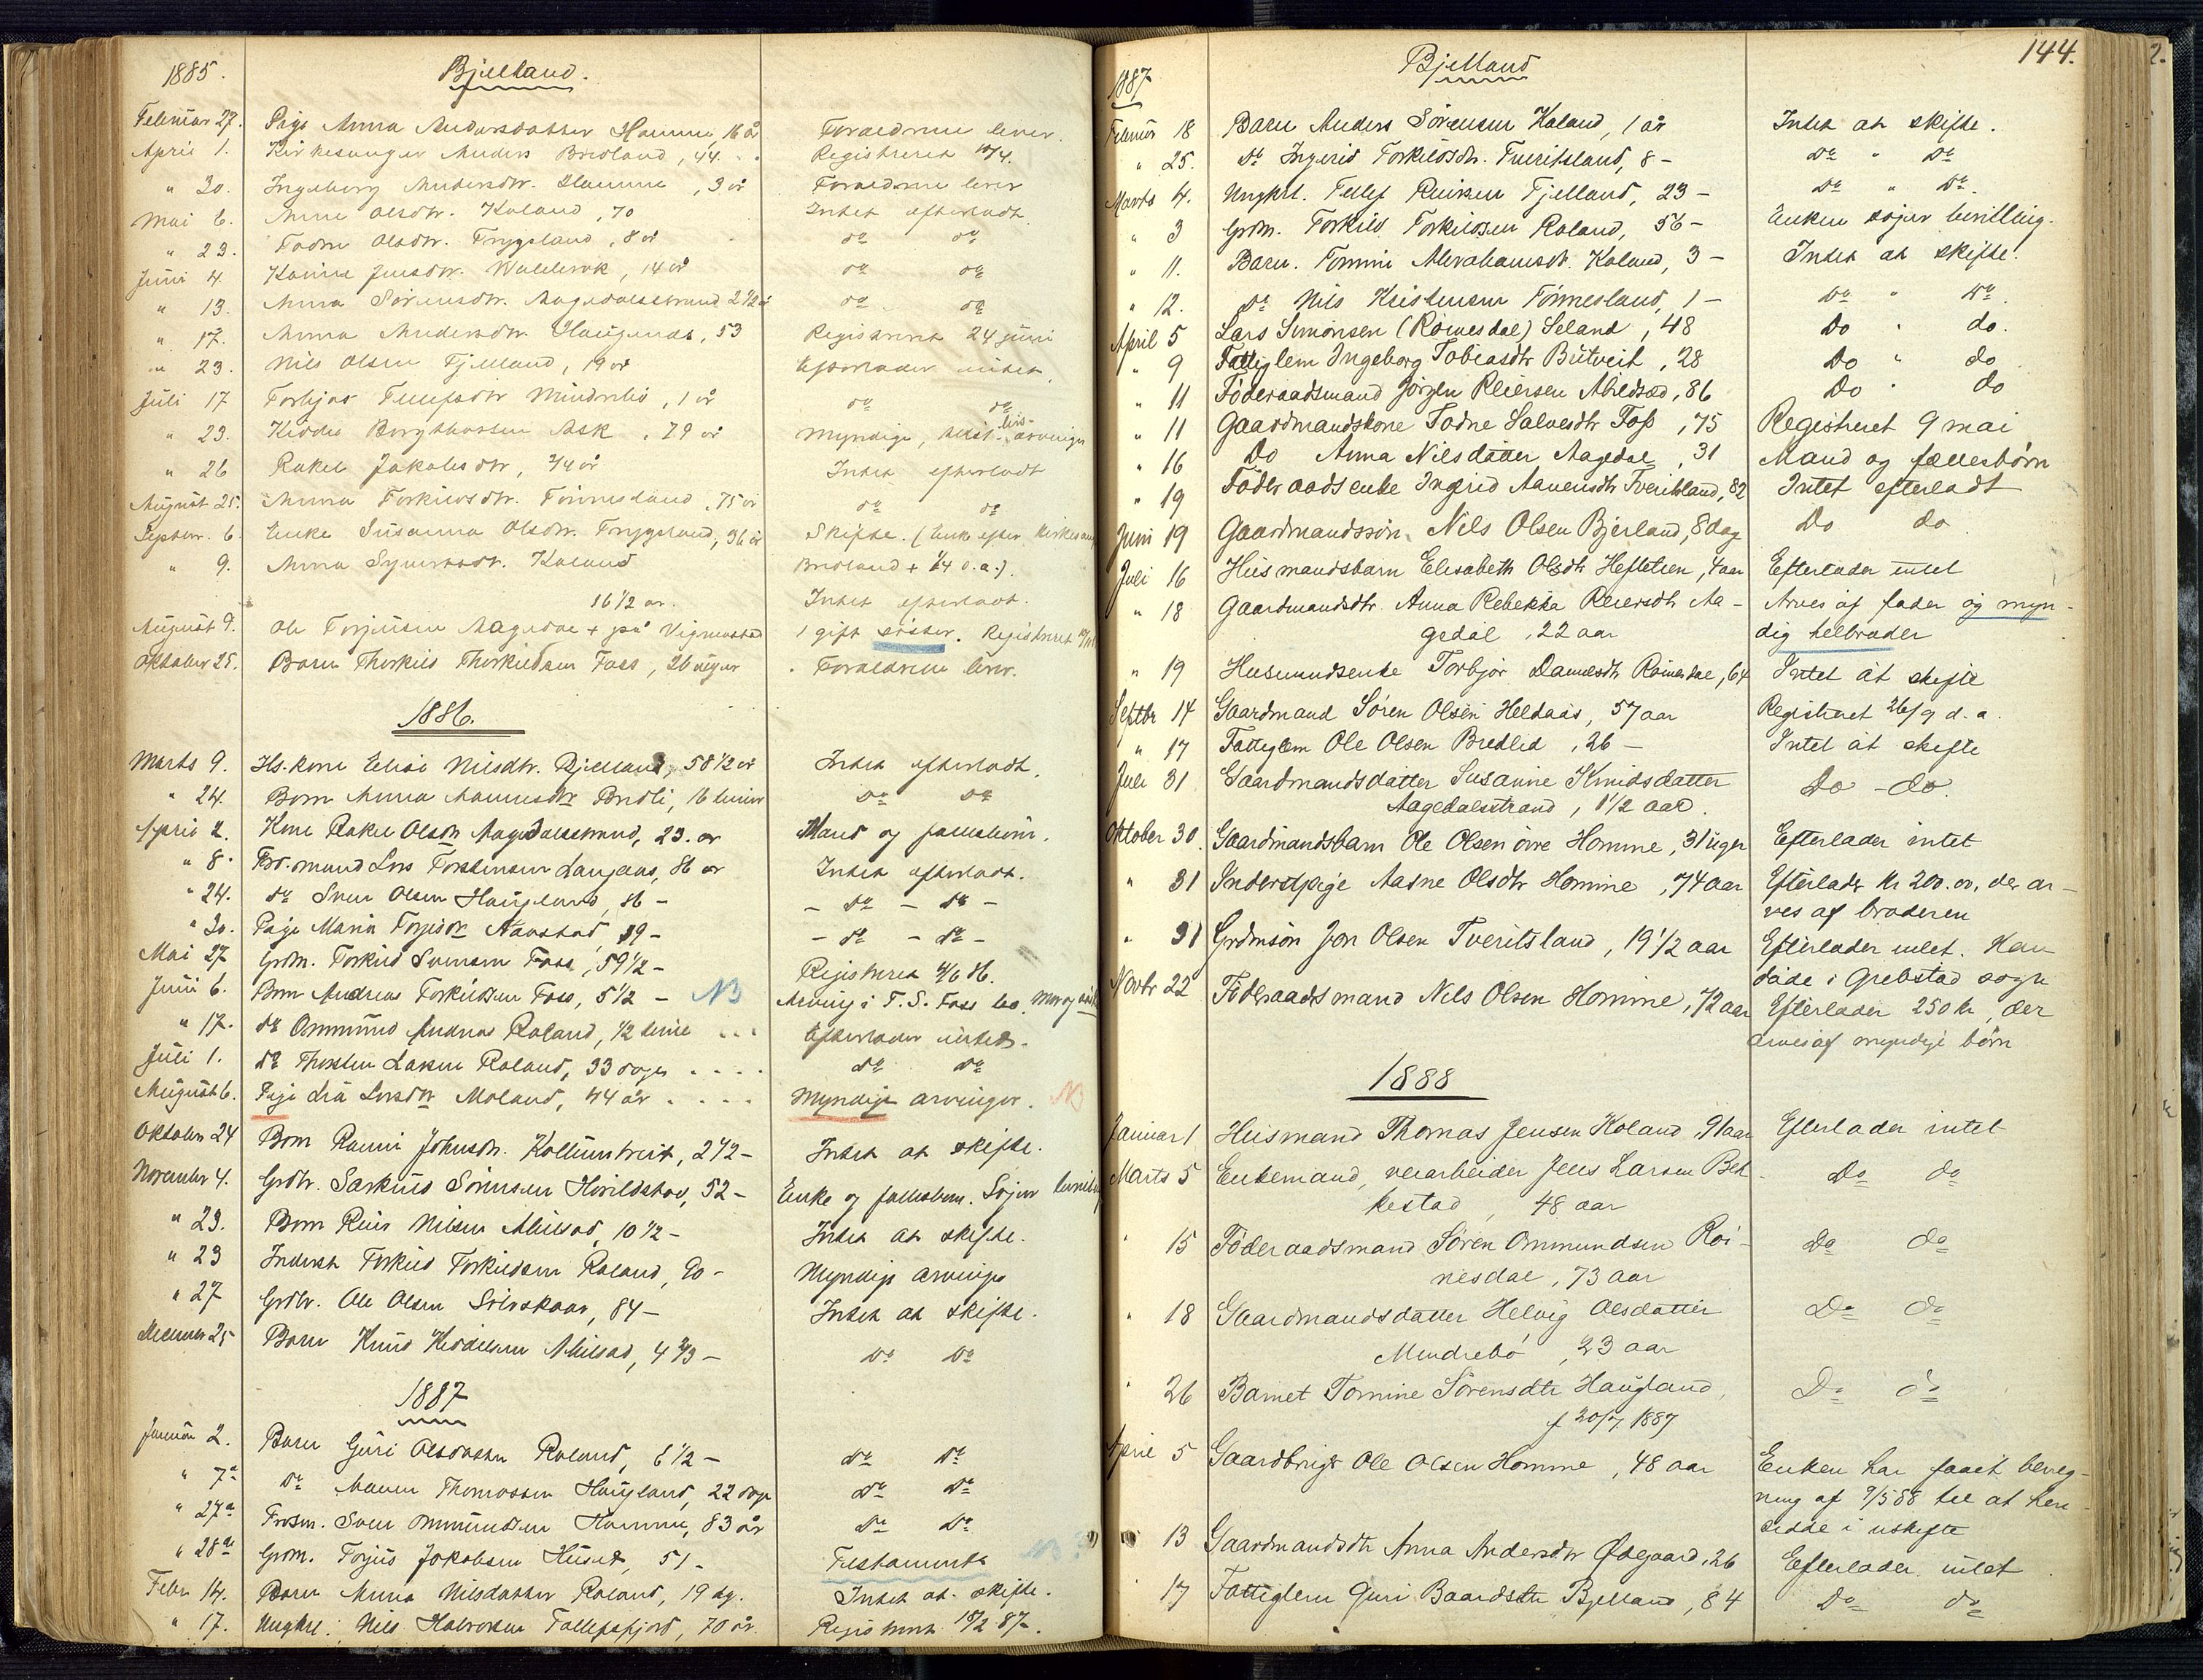 1885.
Bjelland.
Februar 27. Pige Anna Andersdatter Homme, 16 år Foraeldrene lever.
April 1. Kirkesanger Anders Bredland, 44 Registreret 10/4.
" 30. Ingeborg Andersdtr. Homme, 3 år Foraeldrene lever
Mai 6. Anne Olsdtr. Kaland, 70 Intet efterladt.
" 23. Todne Olsdtr. Trygsland, 8 år do do
Juni 4. Jensdtr. 14 år do do
" 13. Anna Sørensdtr. Aagedalsstrand 2 1/2 år do do
" 17. Anna Andersdtr. 53 Registreret 24 juni
" 23. Nils Olsen Fjelland, 19 år Efterlader intet.
Juli 17 Torbjør Mindrebø, 1 år do do
" 23. Ask, 79 år Myndige, arvinger
livs-
" 26 Rakel Jakobsdtr, 3/4 år Intet efterladt
August 25. Anna Torkilsdtr. Tønnesland, 75 år do do
Septbr. 6. Enke Susanna Olsdtr. Trygsland, 36 år Skifte. (Enke efter kirkesang
" 9. Anna Kaland Bredland + 1/4 d.a.).
16 1/2 år. Intet efterladt.
August 9. Ole Torjussen Aagedal + på Vigmostad 1 gift søster. Registreret
Oktober 25. Barn Thorkild Thorkildsen Foss, 26 uger Foraeldrene lever.
1886.
Marts 9. Hs.kone Nilsdtr. Bjelland, 58 1/2 år Intet efterladt.
" 24. Barn Anna 16 timer Do Do
April 2. Kone Rakel Olsdtr Aagedalsstrand, 23. år Mand og fællesbørn.
" 8. Fod.mand Lars Torstensen 86 år Intet efterladt.
" 24. do Sven Olsen Haugland, 86 – – do – do –
" 30. Pige Maria Torjusdtr 89 – – do – do –
Mai 27 Grdm. Torkild Svensen Foss, 59 1/2 – Registreret 4/6 86.
Juni 6. Barn Andreas Torkildsen Foss, 5 1/2 – NB Arving i T. S. Foss bo.
" 17. do Ommund Andreas Roland, 1/2 time ... Efterlader intet.
Juli 1. do Thorsten Larsen Roland, 33 dage .... do do
August 6. Pige Lia Larsdtr Moland, 44 år .... Myndige arvinger. NB
Oktober 24 Barn Johnsdtr. 2 1/2 – Intet at skifte.
November 4. Grdbr. Sørensen 52 – Enke og fællesbørn. Søger bevilling
" 23. Barn Reier Nilsen Abilsød, 10 1/2 – Intet at skifte.
" 23 Inderst Torkild Torkildsen Roland, 60 – Myndige arvinger
" 27 Grdbr. Ole Olsen 84 – Intet at skifte.
December 25 Barn Knud Abilsød, 4 2/3 – Do Do
1887
Januar 2. Barn Guri Olsdatter Roland, 6 1/2 – do do
" 7de Do Thomassen Haugland, 22 dage do do
" 27de Sven Ommundsen Homme, 83 år Do Do
" 28de Grdm. Torjus Jakobsen Huset, 51 – Testamente NB?
Febr 14. Barn Anna Nilsdatter Roland, 19 dg. Intet at skifte.
" 17. Ungkrl. Nils Halvorsen 70 år. Registreret 18/2 87.
144.
1887
Bjelland
Februar 18 Barn Anders Sørensen Kaland, 1 år Intet at skifte.
" 25. do Ingerid Torkildsdtr. Tveritsland, 8 – Do " Do
Marts 4. Ungkrl. Tellef Reiersen Fjelland, 23 – Do " Do.
" 3 Grdm. Torkild Torkildsen Roland, 56 – Enken søger bevilling.
" 11. Barn. Tomine Abrahamsdtr. Kaland, 3 – Intet at skifte.
" 12. do Nils Kristensen Tønnesland, 1 – Do " Do.
April 5 Lars Simonsen (Röinesdal) Seland, 48 Do " do.
" 9 Fattiglem Ingeborg Tobiasdtr Bütveit, 28 Do " do
" 11 Föderaadsmand Jörgen Reiersen Abildsød, 86 Do " do
" 11 Gaardmandskone Todne Salvesdtr Foss, 75 Registreret 9 mai
" 16 Do Anna Nilsdatter Aagedal, 31 Mand og fællesbörn
" 19 Föderaadsenke Ingrid Aanensdtr Tveritsland, 82 Intet efterladt
Juni 19 Gaardmandssön Nels Olsen Bjerland, 8 dag Do do
Juli 16 Huismandsbarn Elisabeth Olsdtr Heftetien, 4 aar Efterlader intet
" 18 Gaardmandsdtr Anna Rebekka Reiersdtr Aa- Arves af fader og myn-
gedal, 22 aar dig helbroder
" 19 Husmandsenke Torbjör Danielsdtr Röinesdal, 64 Intet at skifte
Septbr 14 Gaardmand Sören Olsen Heldaas, 57 aar Registreret 26/9 d.a.
" 17 Fattiglem Ole Olsen Bredlid, 26 – Intet at skifte
Juli 31 Gaardmandsdatter Susanne Knudsdatter Do – do.
Aagedalsstrand, 1 1/2 aar.
Oktober 30. Gaardmandsbarn Ole Olsen övre Homme, 31 uger Efterlader intet
" 31 Inderstpige Aasne Olsdtr Homme, 74 aar Efterlader Kr 200.00, der ar-
ves af broderen
" 31 Grdmsön Jon Olsen Tveritsland, 19 1/2 aar Efterlader intet. Han
döde i Grebstad sogn
Novbr 22 Föderaadsmand Nils Olsen Homme, 72 aar Efterlader 250 kr, der
arves af myndige börn
1888
Januar 1 Huismand Thomas Jensen Koland, 91 aar Efterlader intet
Marts 5 Enkemand, veiarbeider Jens Larsen Bek- Do do
kestad, 48 aar
" 15 Föderaadsmand Sören Ommundsen Röi- Do do
nesdal, 73 aar
" 18 Gaardmandsdatter Helvig Olsdatter Do do
Mendrebö, 23 aar
" 26 Barnet Tomine Sörensdtr Haugland, Do do
f 20/7 1887
April 5 Gaardbruger Ole Olsen Homme, 48 aar Enken har faaet beveg-
ning af 9/5 88 til at hen-
sidde i uskifte
13 Gaardmandsdtr Anna Andersdtr Ødegaard, 26 Efterlader intet
" 17 Fattiglem Guri Baardsdtr Bjelland, 84 Do do
2.